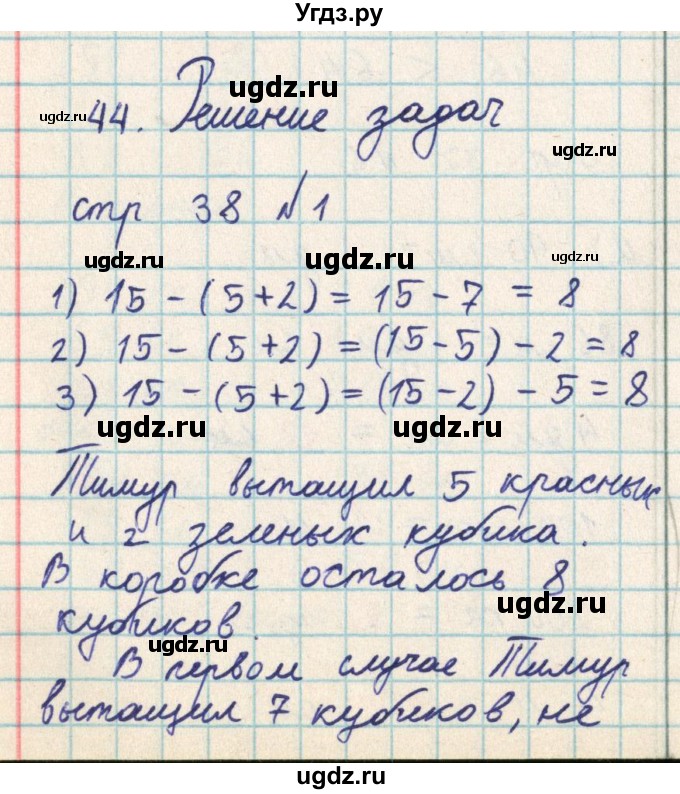 Угдз.ру
ugdz.ru
ugdz.ru 44. Решение задач
ugdz.ru
стр 38 №1
ugdz.ru ugdz.ru
1) 15 - (5+2) = 15 - 7 = 8
2) 15 - (5+2) = (15-5) - 2 = 8
3) 15 - (5+2) = (15-2) - 5 = 8
ugdz.ru ugdz.ru
Тимур вытащил 5 красных
и 2 зеленых кубика.
В коробке осталось 8
ugdz.ru
кубиков.
ugdz.ru
В первом случае Тимур
вытащил 7 кубиков, не
ugdz.ru